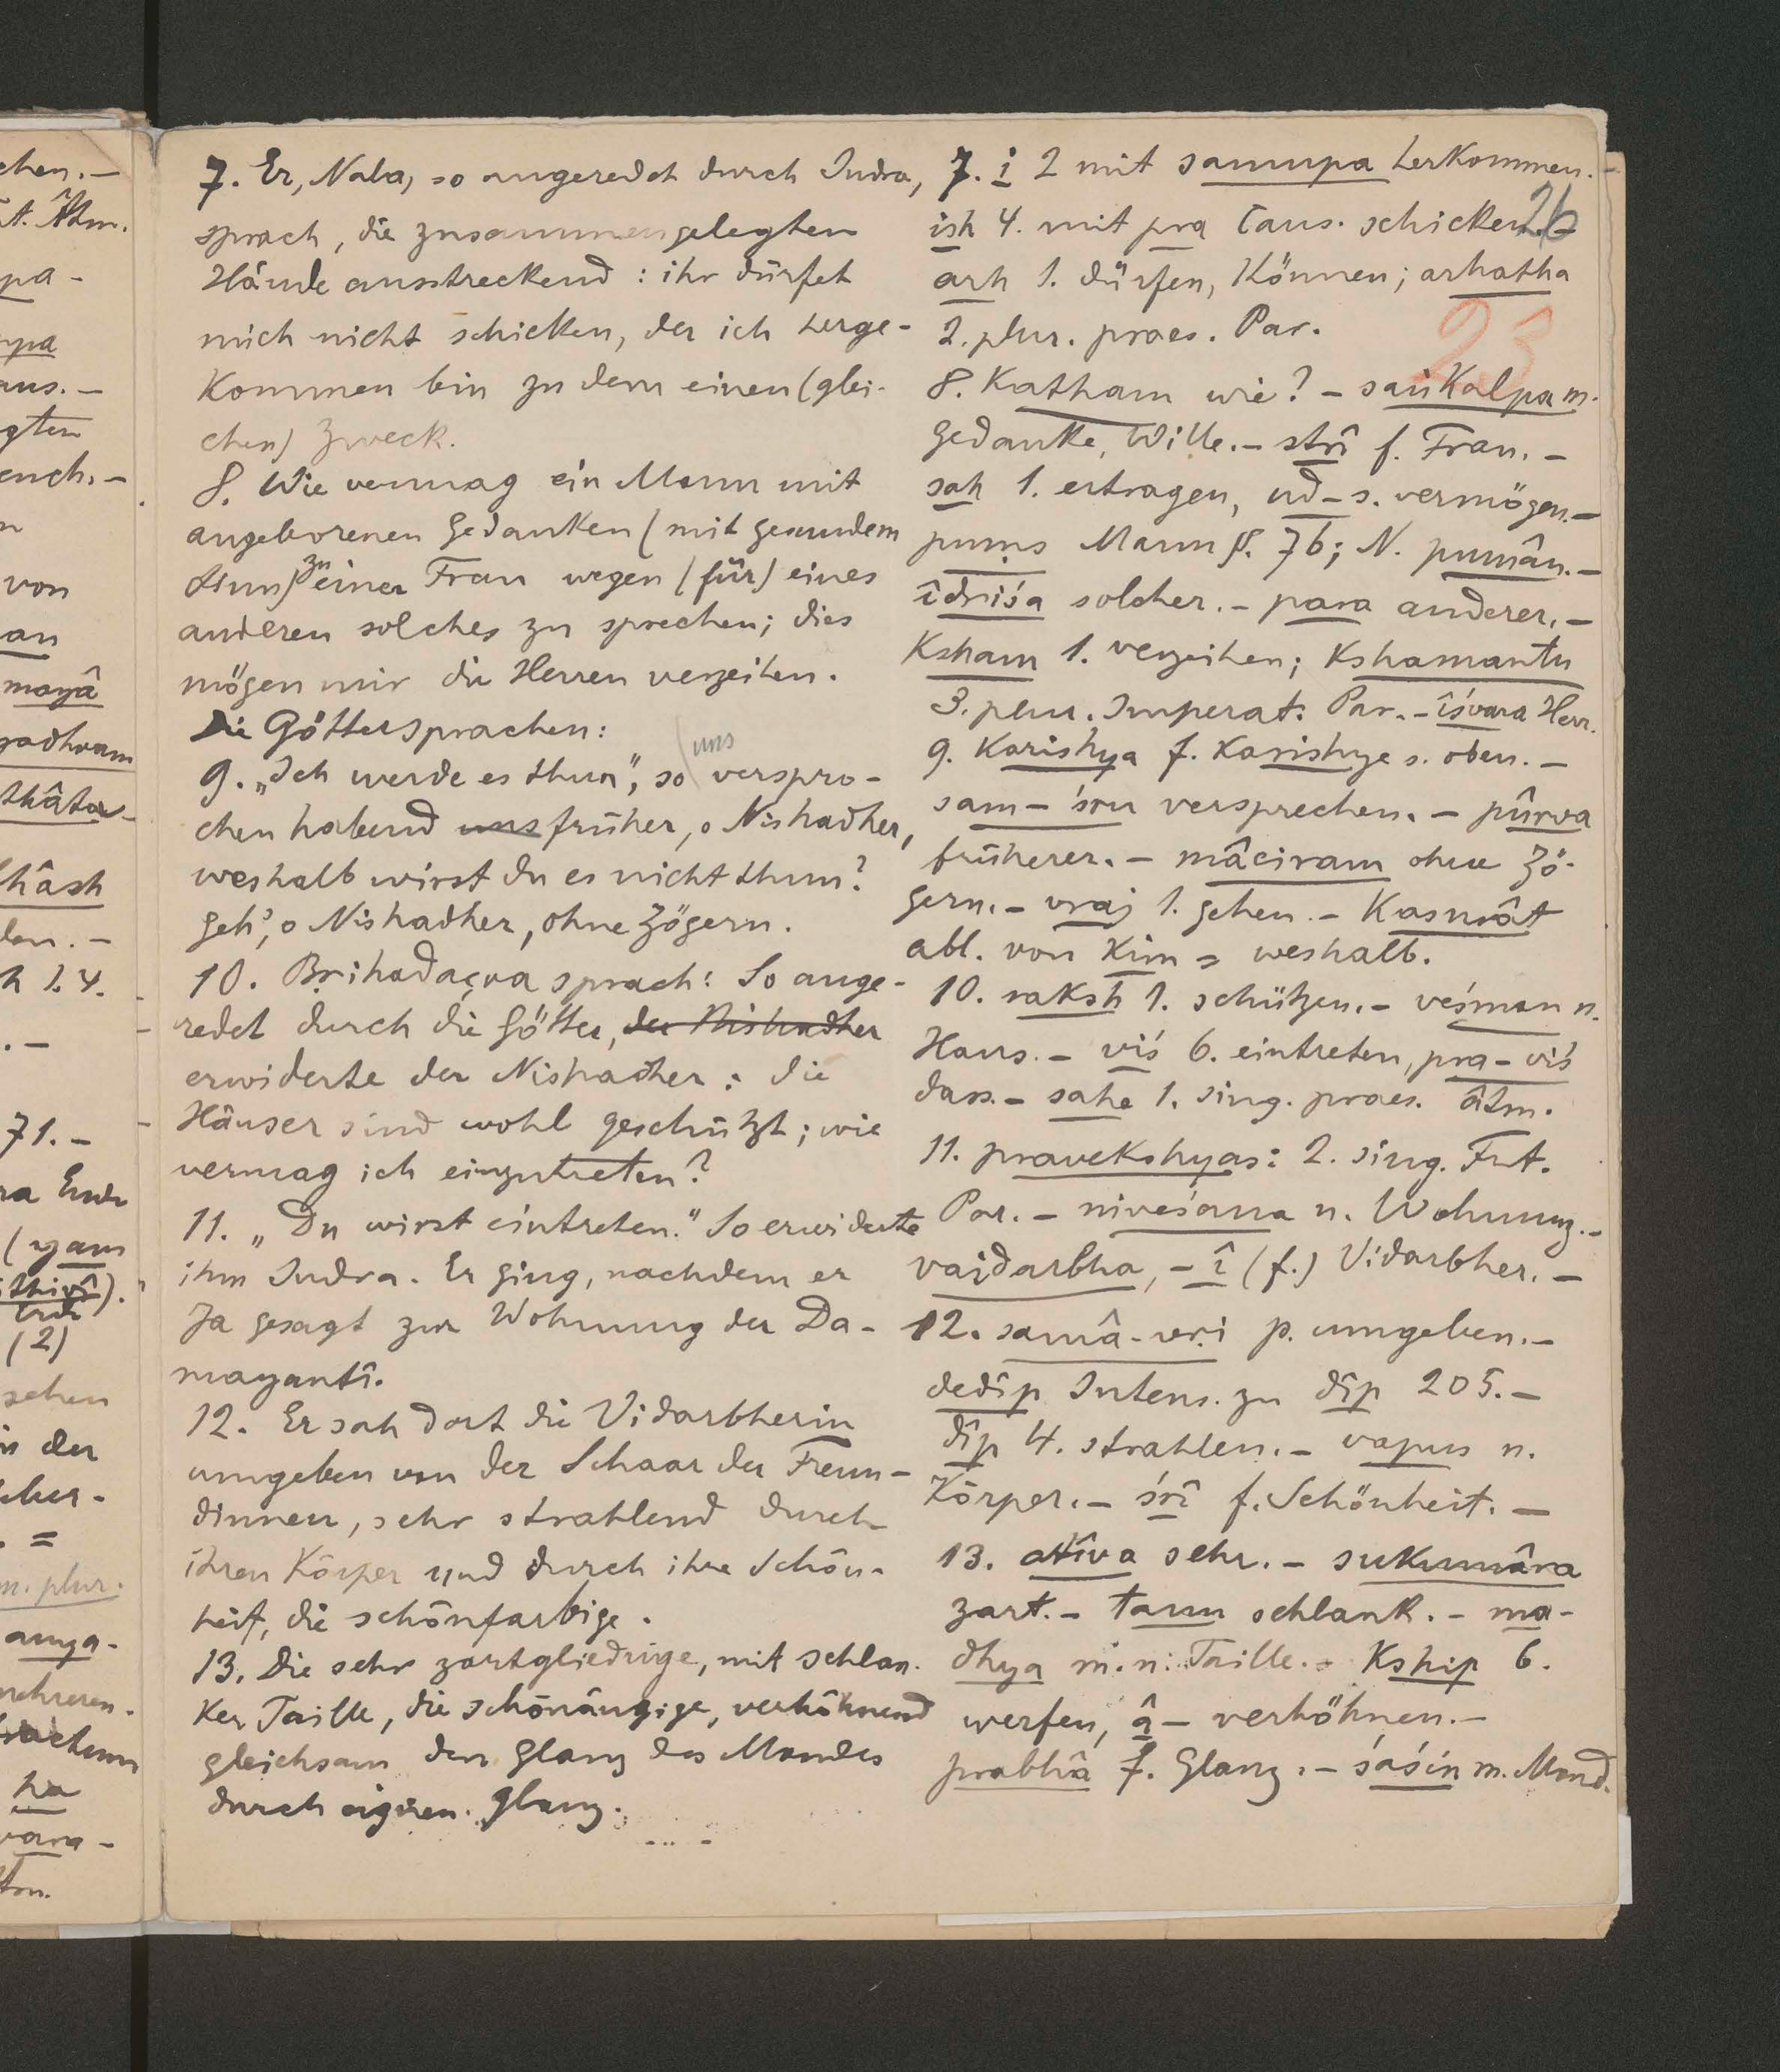 7. Er, Nala, so angeredet durch Indra,
sprach, die zusammengelegten
Hände ausstreckend : ihr dürfet
mich nicht schicken, der ich herge-
kommen bin zu dem einen (glei-
chen) Zweck.
8. Wie vermag ein Mann mit
angeborenen Gedanken (mit gesundem
zu
einer Frau wegen (für) eines
anderen solches zu sprechen; dies
mögen mir die Herren verzeihen.
Die Götter sprachen:
uns
9. „Ich werde es thun“, so verspro-
chen habend uns früher, o Nishadher,
weshalb wirst du es nicht thun?
Geh', o Nishadher, ohne Zögern.
10. Brihadaçva sprach: So ange-
redet durch die Götter, der Nishadher
erwiderte der Nishadher : die
Häuser sind wohl geschützt ; wie
vermag ich einzutreten?
11. „Du wirst eintreten.“ So erwiderte
ihm Indra. Er ging, nachdem er
Ja gesagt zur Wohnung der Da-
mayantî.
12. Er sah dort die Vidarbherin
umgeben von der Schaar der Freun-
dinnen, sehr strahlend durch
ihren Körper und durch ihre Schön-
heit, die schönfarbige.
13. Die sehr zartgliedrige, mit schlan-
ker Taille, die schönäugige, verhöhnend
gleichsam den Glanz des Mondes
durch eignen Glanz.
7. i 2 mit samupa herkommen. -
26
ish 4. mit pra Caus. schicken. -
arh 1. dürfen, können; arhatha
2. plur. praes. Par.
23
8. Katham wie? - saṅkalpa m.
Gedanke, Wille. - strî f. Frau. -
sah 1. ertragen, ud-s. vermögen. -
puṃs Mann §. 76; N. pumân. -
îdriśa solcher. - para anderer. -
Ksham 1. verzeihen; Kshamantu
3. plur. Imperat. Par. - îśvara Herr.
9. Karishya f. Karishye s. oben. -
sam-śru versprechen. - pûrva
früherer. - mâciram ohne Zö-
gern. - vraj 1. gehen. - Kasmât
abl. von Kim = weshalb.
10. raksh 1. schützen. - veśman n.
Haus. - viś 6. eintreten, pra-viś
dass. - sahe 1. sing. praes. âtm.
11. pravekshyas: 2. sing. Fut.
Par. - niveśana n. Wohnung. -
vaidarbha, - î (f.) Vidarbher. -
12. samâ-vṛi p. umgeben. -
dedîp Intens. zu dîp 205. -
dîp 4. strahlen. - vapus n.
Körper. - śrî f. Schönheit. -
13. atîva sehr. - sukumâra
zart. - tanu schlank. - ma-
dhya m. n. Taille. - Kship 6.
werfen, â - verhöhnen. -
prabhâ f. Glanz. - śaśin m. Mond.